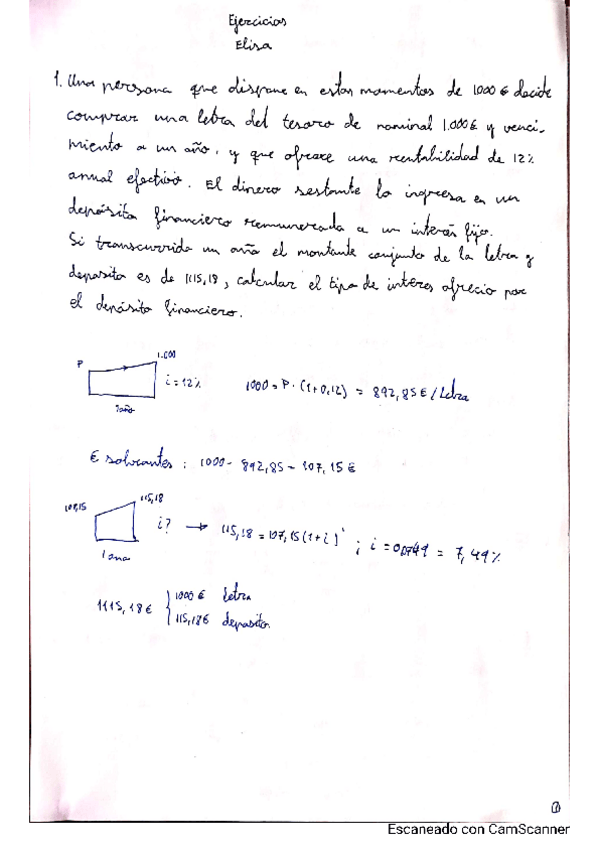 Ejercicios
Elisa
1. Una persona que dispone en estos momentos de 1000 € decide
comprar una letra del tesoro de nominal 1.000 € y venci-
miento a un año, y que ofrece una rentabilidad de 12%
anual efectivo. El dinero restante lo ingresa en un
depósito financiero remunerado a un interés fijo.
Si transcurrido un año el montante conjunto de la letra y
deposito es de 1115,18, calcular el tipo de interes ofrecio por
el depósito financiero.
1.000
P
i = 12%
1000 = P · (1+0,12) = 892,85 € / Letra
1 año
€ : 1000 - 892,85 = 107,15 €
115,18
107,15
i?
→ 115,18 = 107,15 (1+i)¹ ; i = 0,0749 = 7,49%
1 ano
1115,18 €
1000 € letra
115,18 € deposito
1
Escaneado con CamScanner